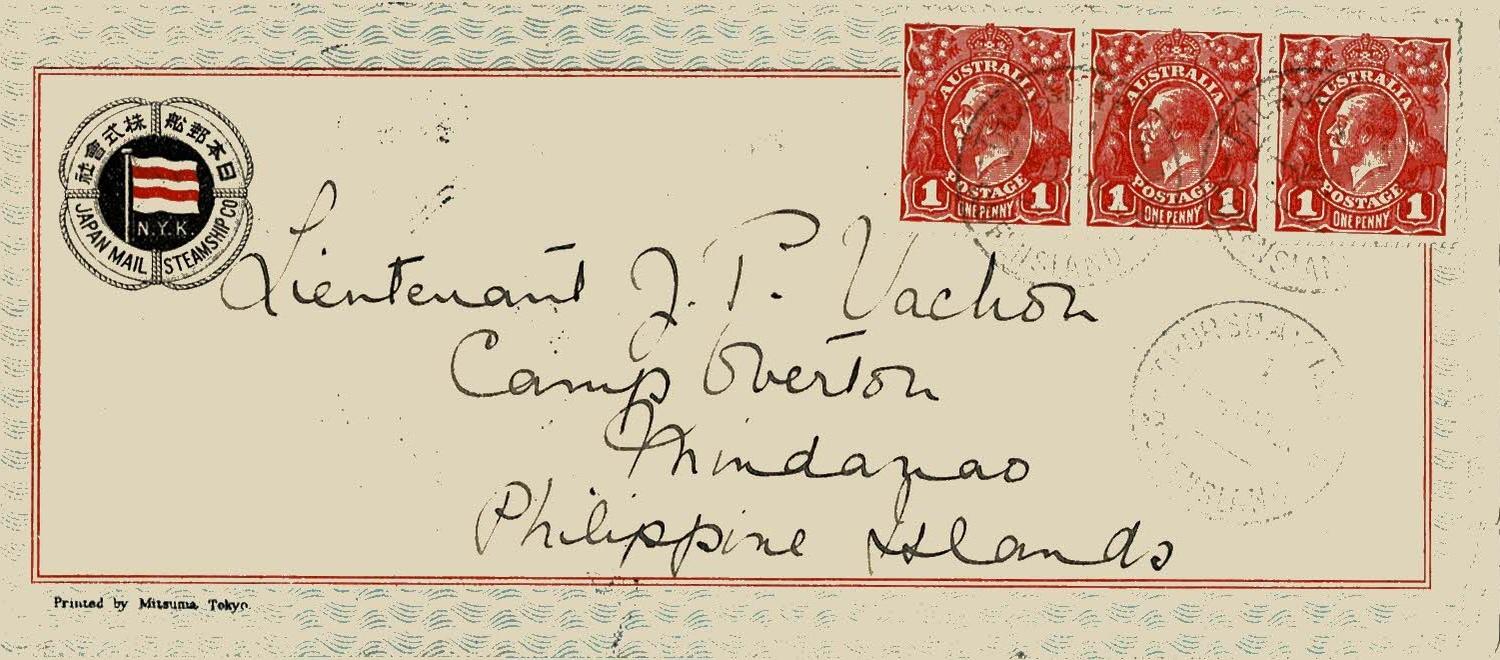 日本郵船 株式會社
N.Y.K.
JAPAN MAIL STEAMSHIP CO
AUSTRALIA
POSTAGE
1 ONE PENNY 1
AUSTRALIA
POSTAGE
1 ONE PENNY 1
AUSTRALIA
POSTAGE
1 ONE PENNY 1
Lieutenant J. P. Vachon
Camp Overton
Mindanao
Philippine Islands
Printed by Mitsuma, Tokyo.